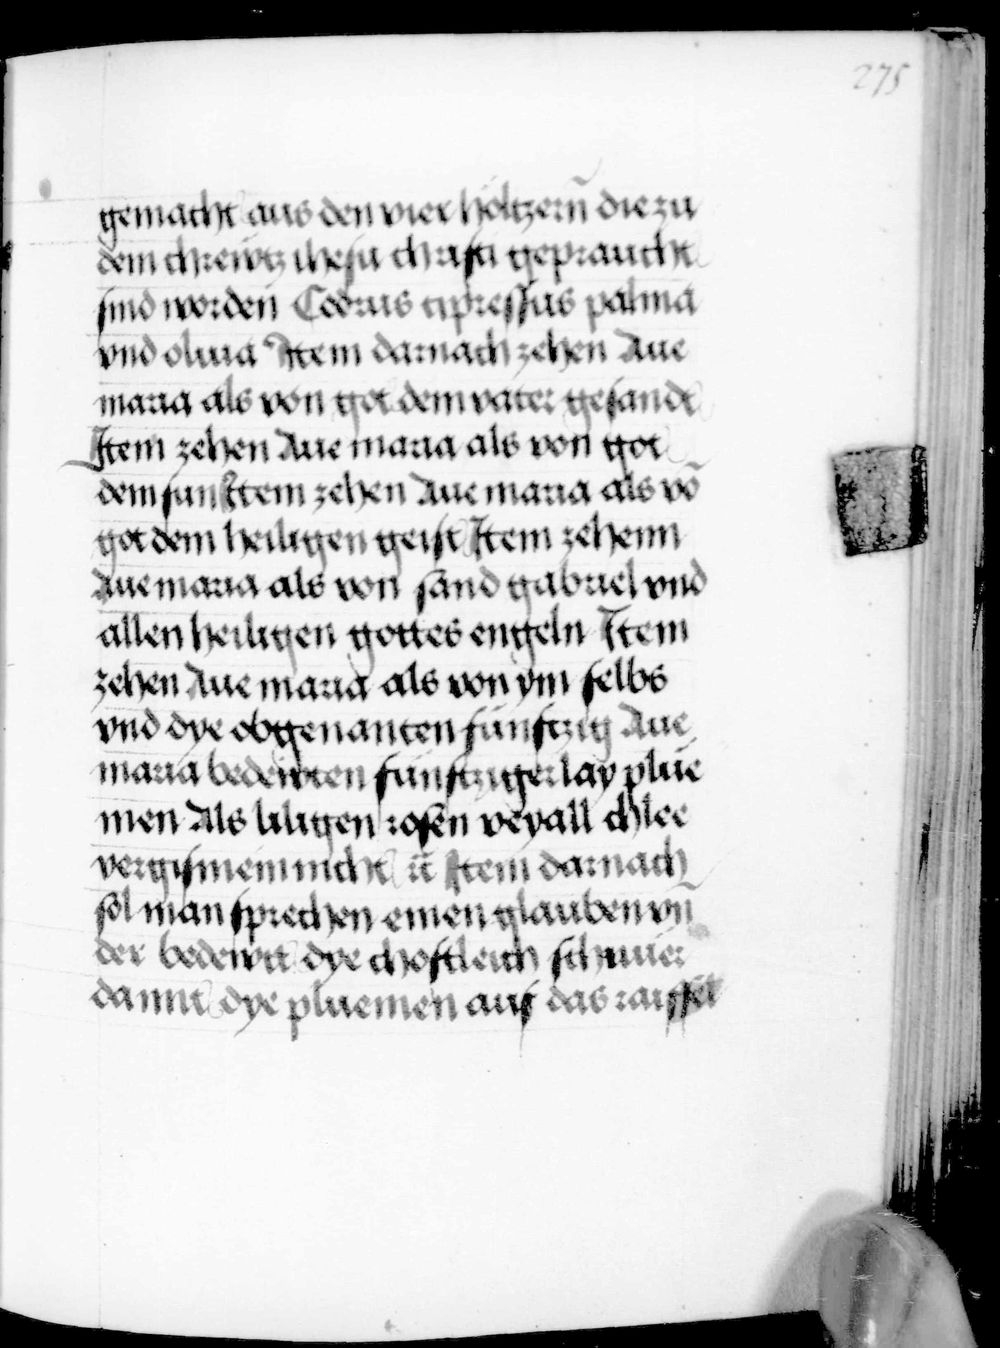 275
gemacht aus den vier höltzern̄ die zu
dem chrewtz ihesu christi gepraucht
sind worden Cedrus cipressus palma
vnd oliua Item darnach zehen Aue
maria als von got dem vater gesandt
Item zehen Aue maria als von got
dem sun Item zehen Aue maria als vō
got dem heiligen geist Item zehenn
Aue maria als von sand gabriel vnd
allen heiligen gottes engeln Item
zehen Aue maria als von ym selbs
vnd dye obgenanten fünftzig Aue
maria bedewten fünftzigerlay plüe
men Als liligen rosen veyall chlee
vergismeinnicht rc̄ Item darnach
sol man sprechen einen glauben vn̄
der bedewtt dye chostleich schnüer
damit dye pluemen auf das raiffel